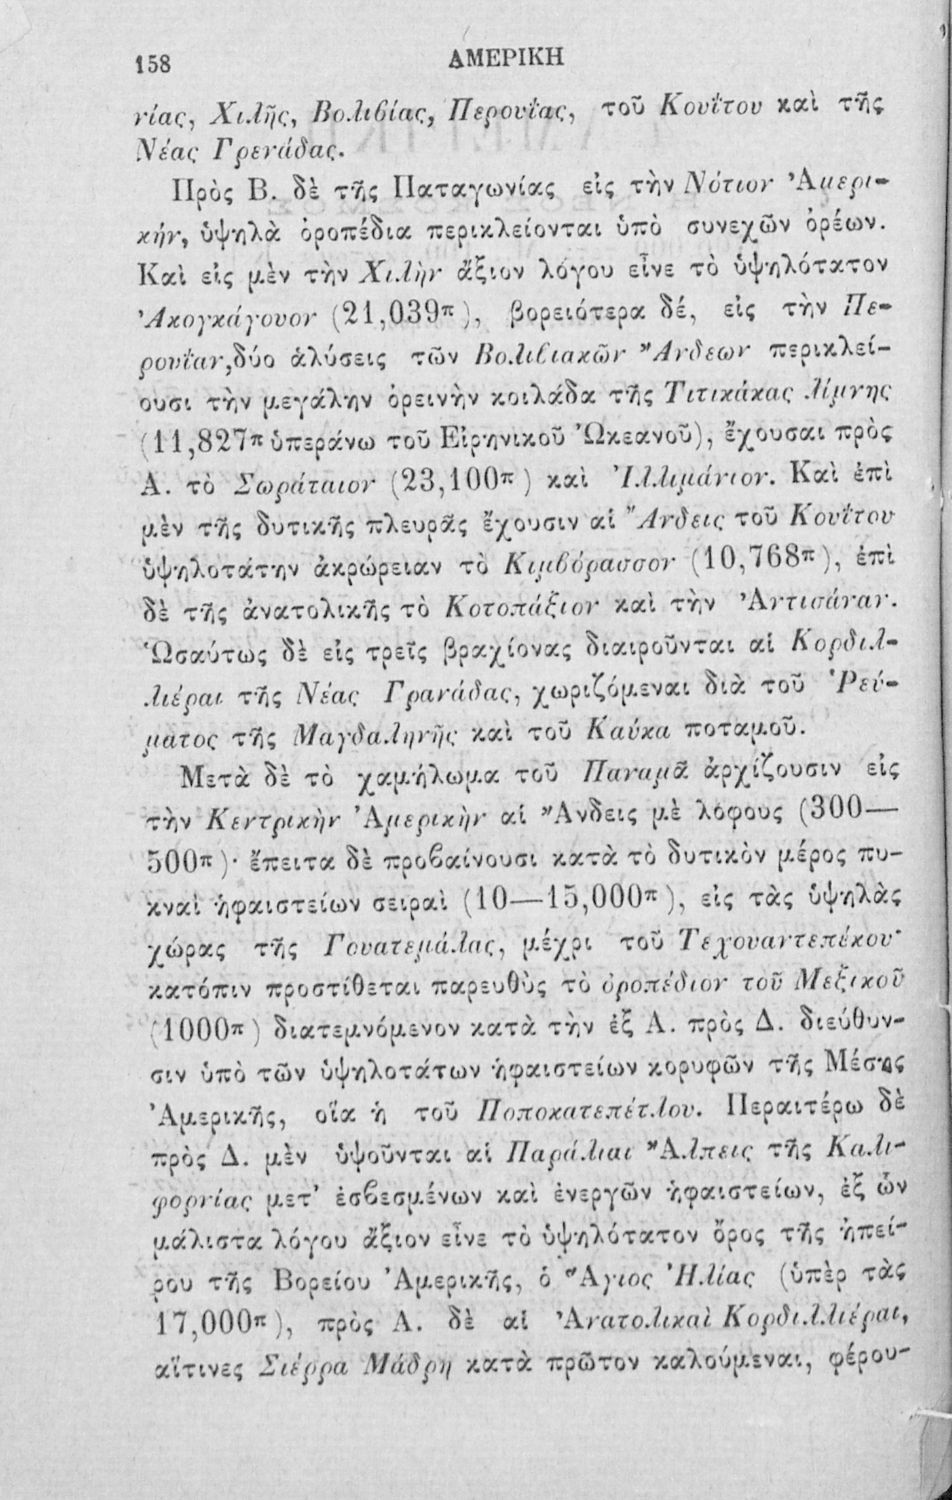 158 ΑΜΕΡΙΚΗ
νίας, Χιλῆς, Βολιβίας, Περουΐας, τοῦ Κουΐτου καὶ τῆς
Νέας Γρενάδας.
Πρὸς Β. δὲ τῆς Παταγωνίας εἰς τὴν Νότιον Ἀμερι-
κήν, ὑψηλὰ ὀροπέδια περικλείονται ὑπὸ συνεχῶν ὀρέων.
Καὶ εἰς μὲν τὴν Χιλὴν ἄξιον λόγου εἶνε τὸ ὑψηλότατον
Ἀκογκάγουον (21,039π), βορειότερα δέ, εἰς τὴν Πε-
ρουΐαν, δύο ἁλύσεις τῶν Βολιβιακῶν Ἄνδεων περικλεί-
ουσι τὴν μεγάλην ὀρεινὴν κοιλάδα τῆς Τιτικάκας λίμνης
(11,827π ὑπεράνω τοῦ Εἰρηνικοῦ Ὠκεανοῦ), ἔχουσαι πρὸς
Α. τὸ Σωράταιον (23,100π) καὶ Ἰλλιμάνιον. Καὶ ἐπὶ
μὲν τῆς δυτικῆς πλευρᾶς ἔχουσιν αἱ Ἄνδεις τοῦ Κουΐτου
ὑψηλοτάτην ἀκρώρειαν τὸ Κιμβόρασσον (10,768π), ἐπὶ
δὲ τῆς ἀνατολικῆς τὸ Κοτοπάξιον καὶ τὴν Ἀντισάναν.
Ὡσαύτως δὲ εἰς τρεῖς βραχίονας διαιροῦνται αἱ Κορδιλ-
λιέραι τῆς Νέας Γρανάδας, χωριζόμεναι διὰ τοῦ Ῥεύ-
ματος τῆς Μαγδαληνῆς καὶ τοῦ Καύκα ποταμοῦ.
Μετὰ δὲ τὸ χαμήλωμα τοῦ Παναμᾶ ἀρχίζουσιν εἰς
τὴν Κεντρικὴν Ἀμερικὴν αἱ Ἄνδεις μὲ λόφους (300—
500π)· ἔπειτα δὲ προβαίνουσι κατὰ τὸ δυτικὸν μέρος πυ-
κναὶ ἡφαιστείων σειραὶ (10—15,000π), εἰς τὰς ὑψηλὰς
χώρας τῆς Γουατεμάλας, μέχρι τοῦ Τεχουαντεπέκου·
κατόπιν προστίθεται παρευθὺς τὸ ὀροπέδιον τοῦ Μεξικοῦ
(1000π) διατεμνόμενον κατὰ τὴν ἐξ Α. πρὸς Δ. διεύθυν-
σιν ὑπὸ τῶν ὑψηλοτάτων ἡφαιστείων κορυφῶν τῆς Μέσης
Ἀμερικῆς, οἵα ἡ τοῦ Ποποκατεπέτλου. Περαιτέρω δὲ
πρὸς Δ. μὲν ὑψοῦνται αἱ Παράλιαι Ἄλπεις τῆς Καλι-
φορνίας μετ’ ἐσβεσμένων καὶ ἐνεργῶν ἡφαιστείων, ἐξ ὧν
μάλιστα λόγου ἄξιον εἶνε τὸ ὑψηλότατον ὄρος τῆς ἠπεί-
ρου τῆς Βορείου Ἀμερικῆς, ὁ Ἅγιος Ἠλίας (ὑπὲρ τὰς
17,000π), πρὸς Α. δὲ αἱ Ἀνατολικαὶ Κορδιλλιέραι,
αἵτινες Σιέρρα Μάδρη κατὰ πρῶτον καλούμεναι, φέρου-